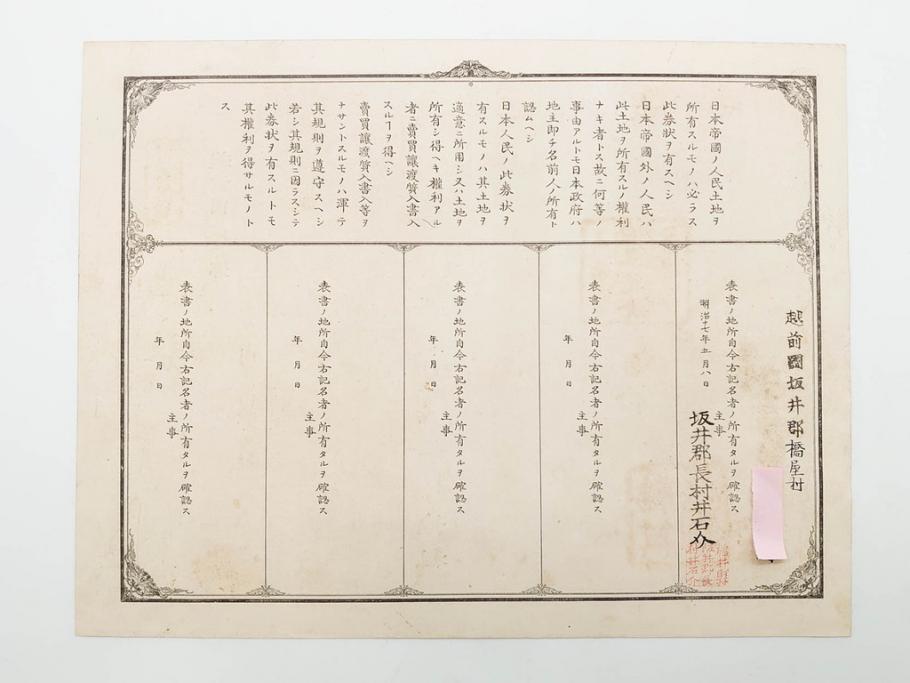 日本帝國ノ人民土地ヲ
所有スルモノハ必ラス
此券狀ヲ有スヘシ
日本帝國外ノ人民ハ
此土地ヲ所有スルノ權利
ナキ者トス故ニ何等ノ
事由アルトモ日本政府ハ
地主即チ名前人ノ所有ト
認ムヘシ
日本人民ノ此券狀ヲ
有スルモノハ其土地ヲ
適意ニ所用シ又ハ土地ヲ
所有シ得ヘキ權利アル
者ニ賣買讓渡質入書入
スルヿヲ得ヘシ
賣買讓渡質入書入等ヲ
ナサントスルモノハ渾テ
其規則ヲ遵守スヘシ
若シ其規則ニ因ラスシテ
此券狀ヲ有スルトモ
其權利ヲ得サルモノト
ス
越前國坂井郡橋屋村
表書ノ地所自今右記名者ノ所有タルヲ確認ス
明治十七年五月八日
主事
坂井郡長村井石介
福井縣
坂井郡長
村井石介
表書ノ地所自今右記名者ノ所有タルヲ確認ス
年 月 日
主事
表書ノ地所自今右記名者ノ所有タルヲ確認ス
年 月 日
主事
表書ノ地所自今右記名者ノ所有タルヲ確認ス
年 月 日
主事
表書ノ地所自今右記名者ノ所有タルヲ確認ス
年 月 日
主事